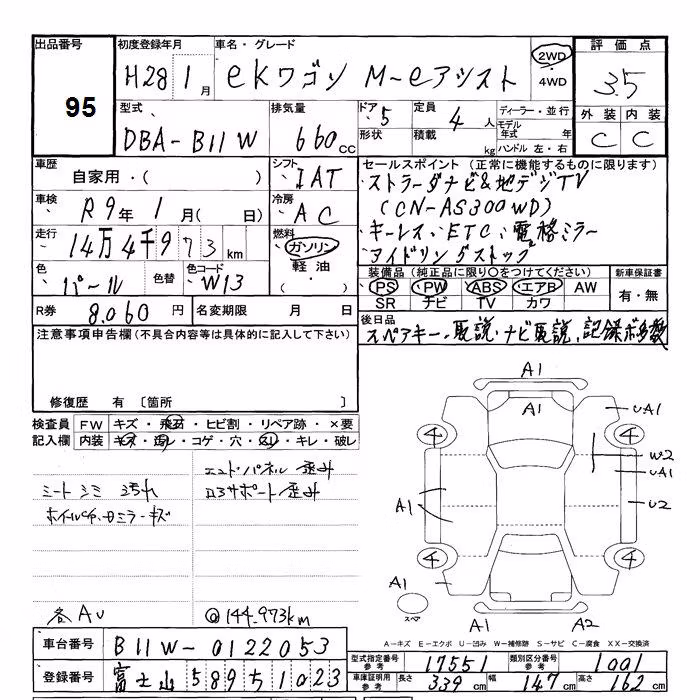 出品番号
95
初度登録年月
H28 1月
車名・グレード
eKワゴン M-eアシスト
2WD
・
4WD
評価点
3.5
外装 内装
C C
型式
DBA-B11W
排気量
660cc
ドア 5
形状
定員 4人
積載 kg
ディーラー・並行
モデル
年式 年
ハンドル 左・右
車歴
自家用・( )
シフト
IAT
車検
R9年 1月( 日)
冷房
AC
走行
14万4千973km
燃料
ガソリン
軽油
・( )
色
パール
色替
色コード
W13
R券 8,060円
名変期限 月 日
セールスポイント(正常に機能するものに限ります)
・ストラーダナビ&地デジTV
(CN-AS300WD)
・キーレス・ETC・電格ミラー
・アイドリングストップ
装備品(純正品に限り○をつけてください)
PS ・PW ABS ・エアB AW
SR ナビ TV カワ
新車保証書
有・無
後日品
スペアキー、取説、ナビ取説、記録ボ多数
注意事項申告欄(不具合内容等は具体的に記入して下さい)
修復歴 有 〔箇所 〕
検査員
記入欄
FW キズ・飛石・ヒビ割・リペア跡・×要
内装 キズ・汚レ・コゲ・穴・スレ・キレ・破レ
シートシミ 汚れ
ホイルCP、ミラーキズ
エンドパネル 歪み
ロアサポート 歪み
各AU
@144,973km
A1
A1
UA1
4
4
W2
UA1
A1
U2
4
4
A1
スペア
A1
A2
A－キズ E－エクボ U－凹み W－補修跡 S－サビ C－腐食 XX－交換済
車台番号 B11W-0122053
登録番号 富士山 589 う 1023
型式指定番号
参考
17551
類別区分番号
参考
1001
車庫証明用
参考
長さ 339cm
幅 147cm
高さ 162cm